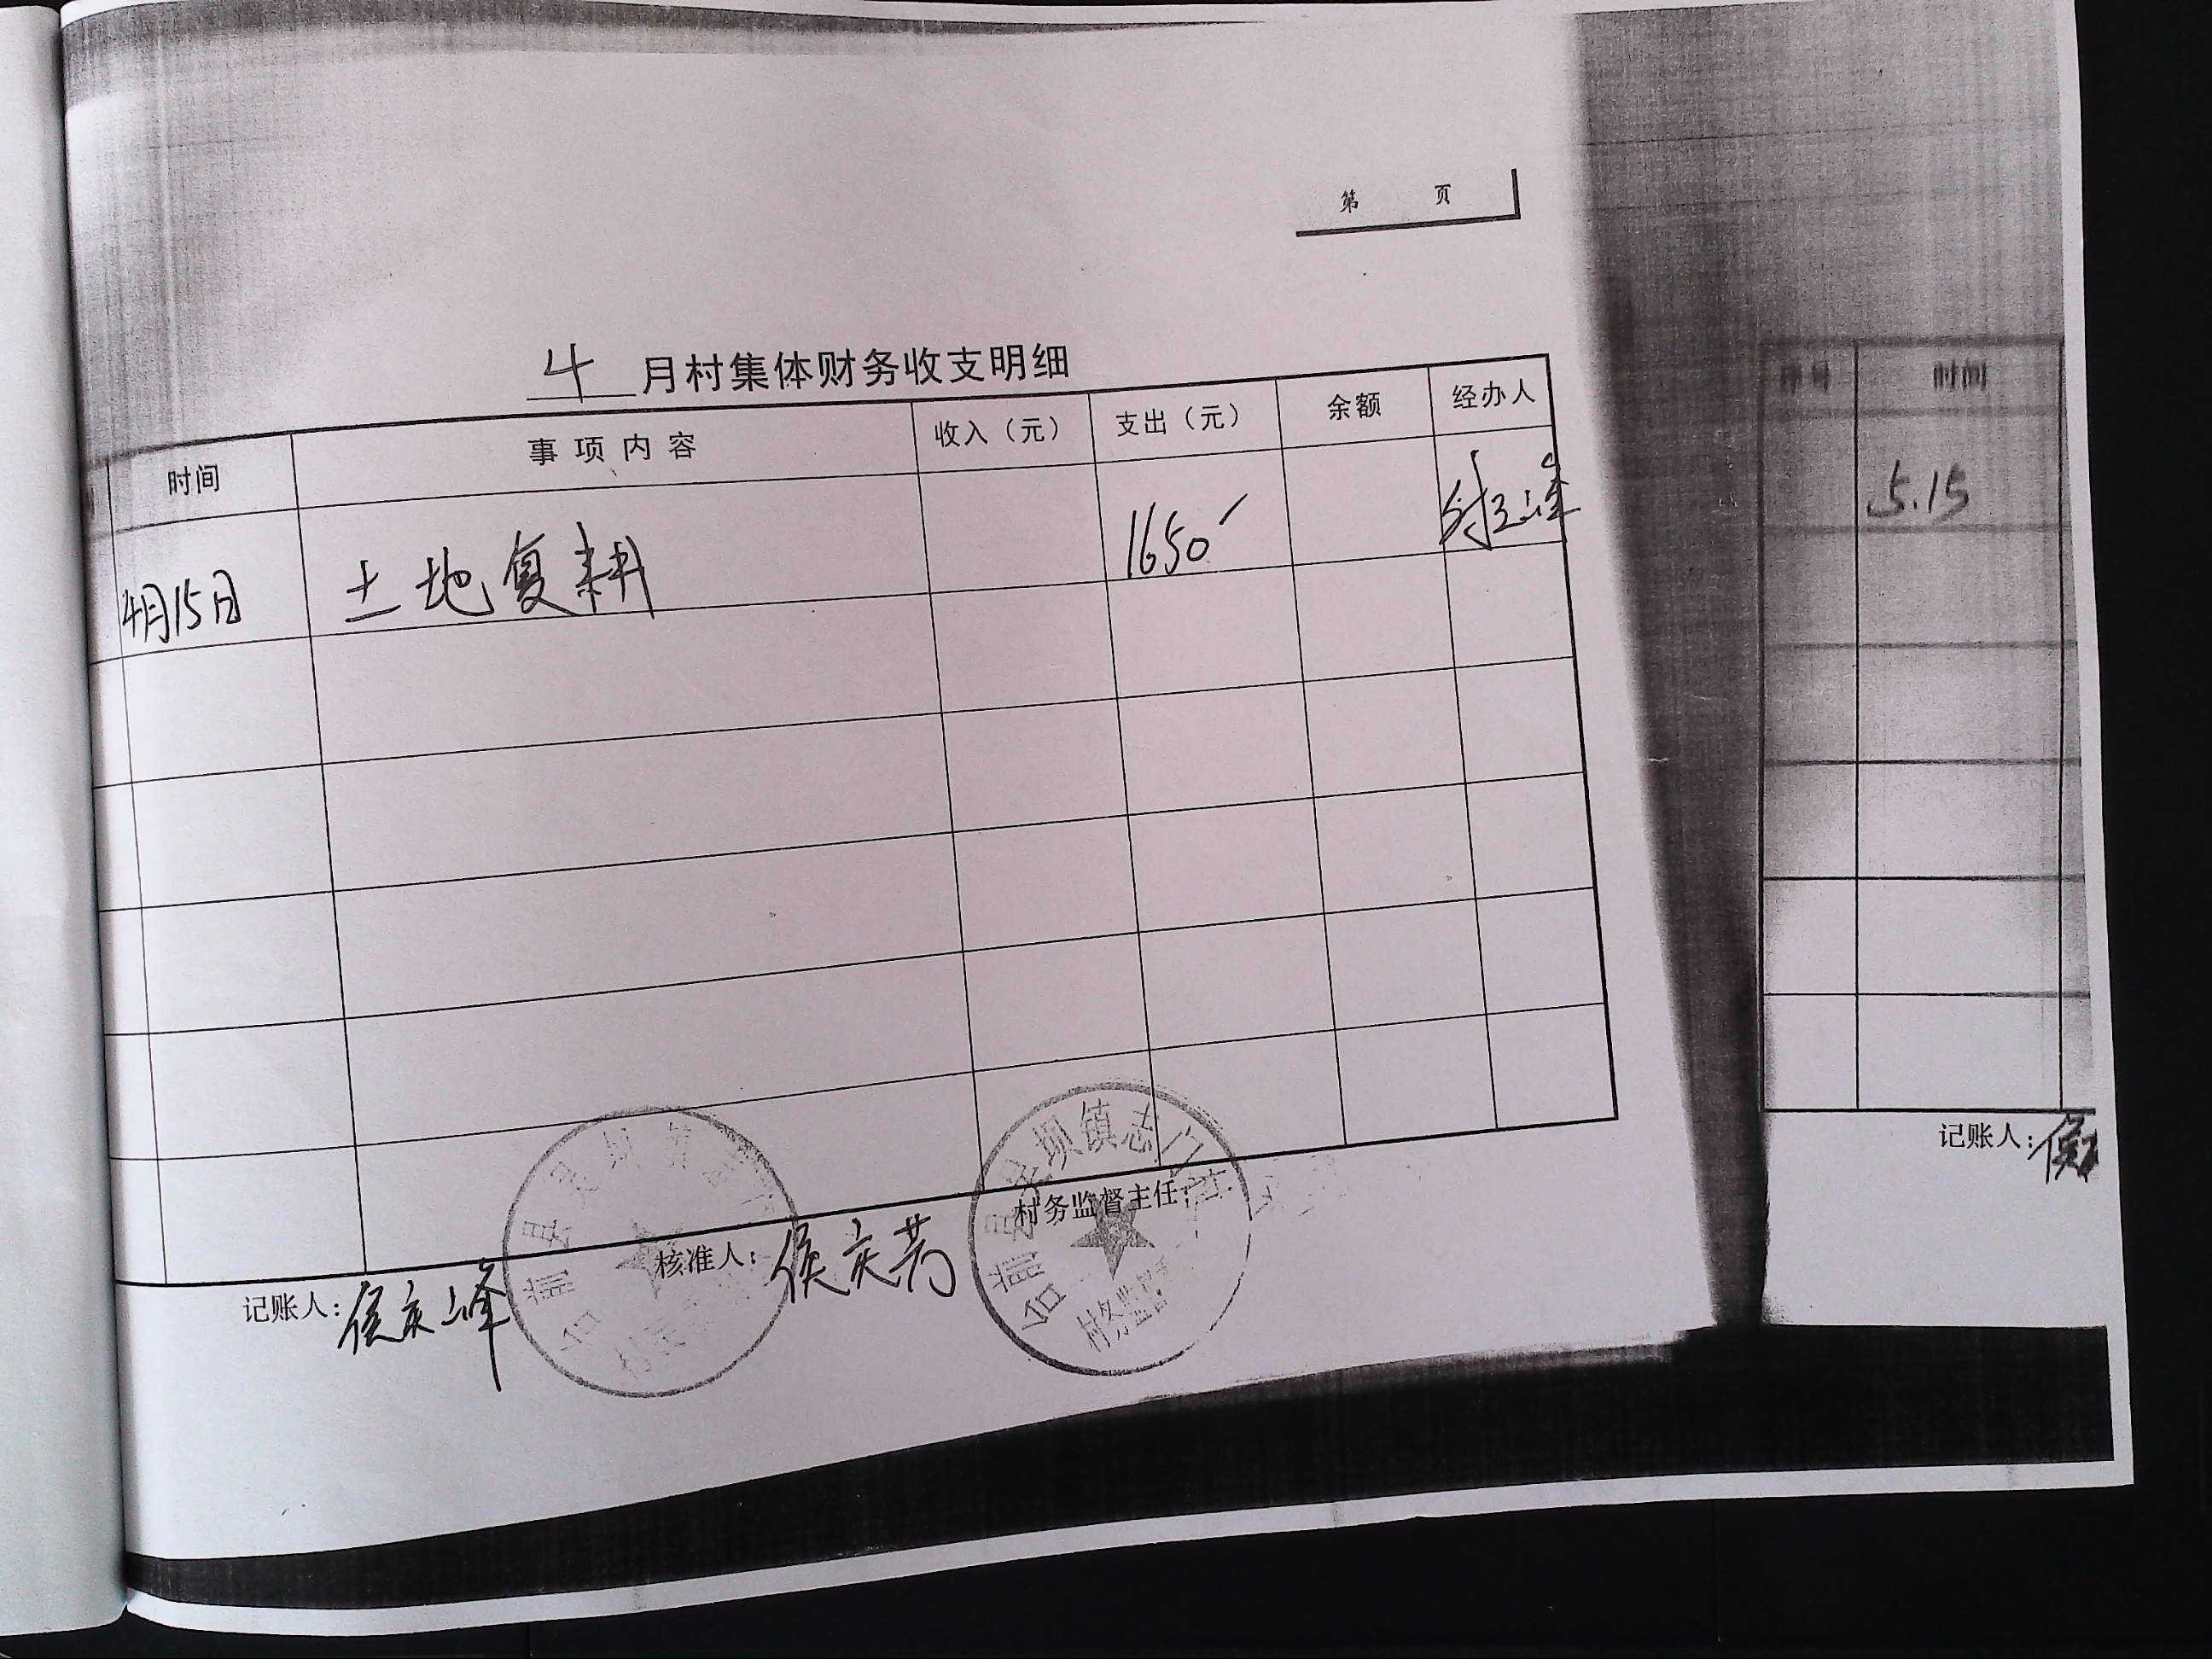 第 页
4 月村集体财务收支明细
时间 事项内容 收入（元） 支出（元） 余额 经办人
4月15日 土地复耕 1650
记账人：侯庆峰 核准人：侯庆芳 村务监督主任：
坝镇志门
村务监督
时间
5.15
记账人：侯